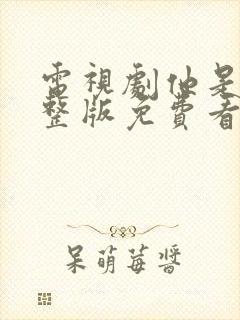 電視劇他是
整版免費看
呆萌莓醬